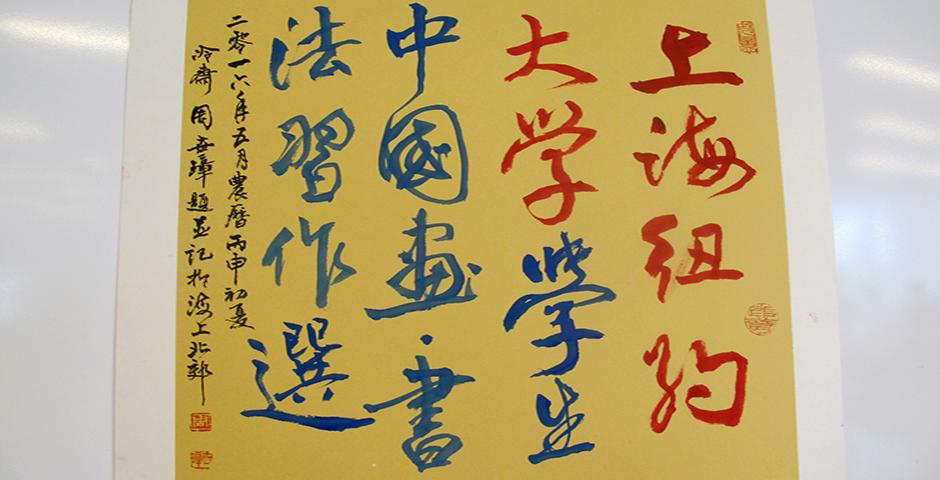 上海纽约
大学学生
中國画·書
法習作選
二零一六年五月農曆丙申初夏
冷齋周世璋題並記於海上北郊